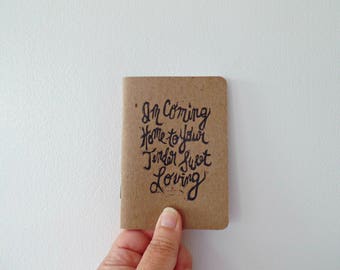 I'm Coming
Home to Your
Tender Sweet
Loving